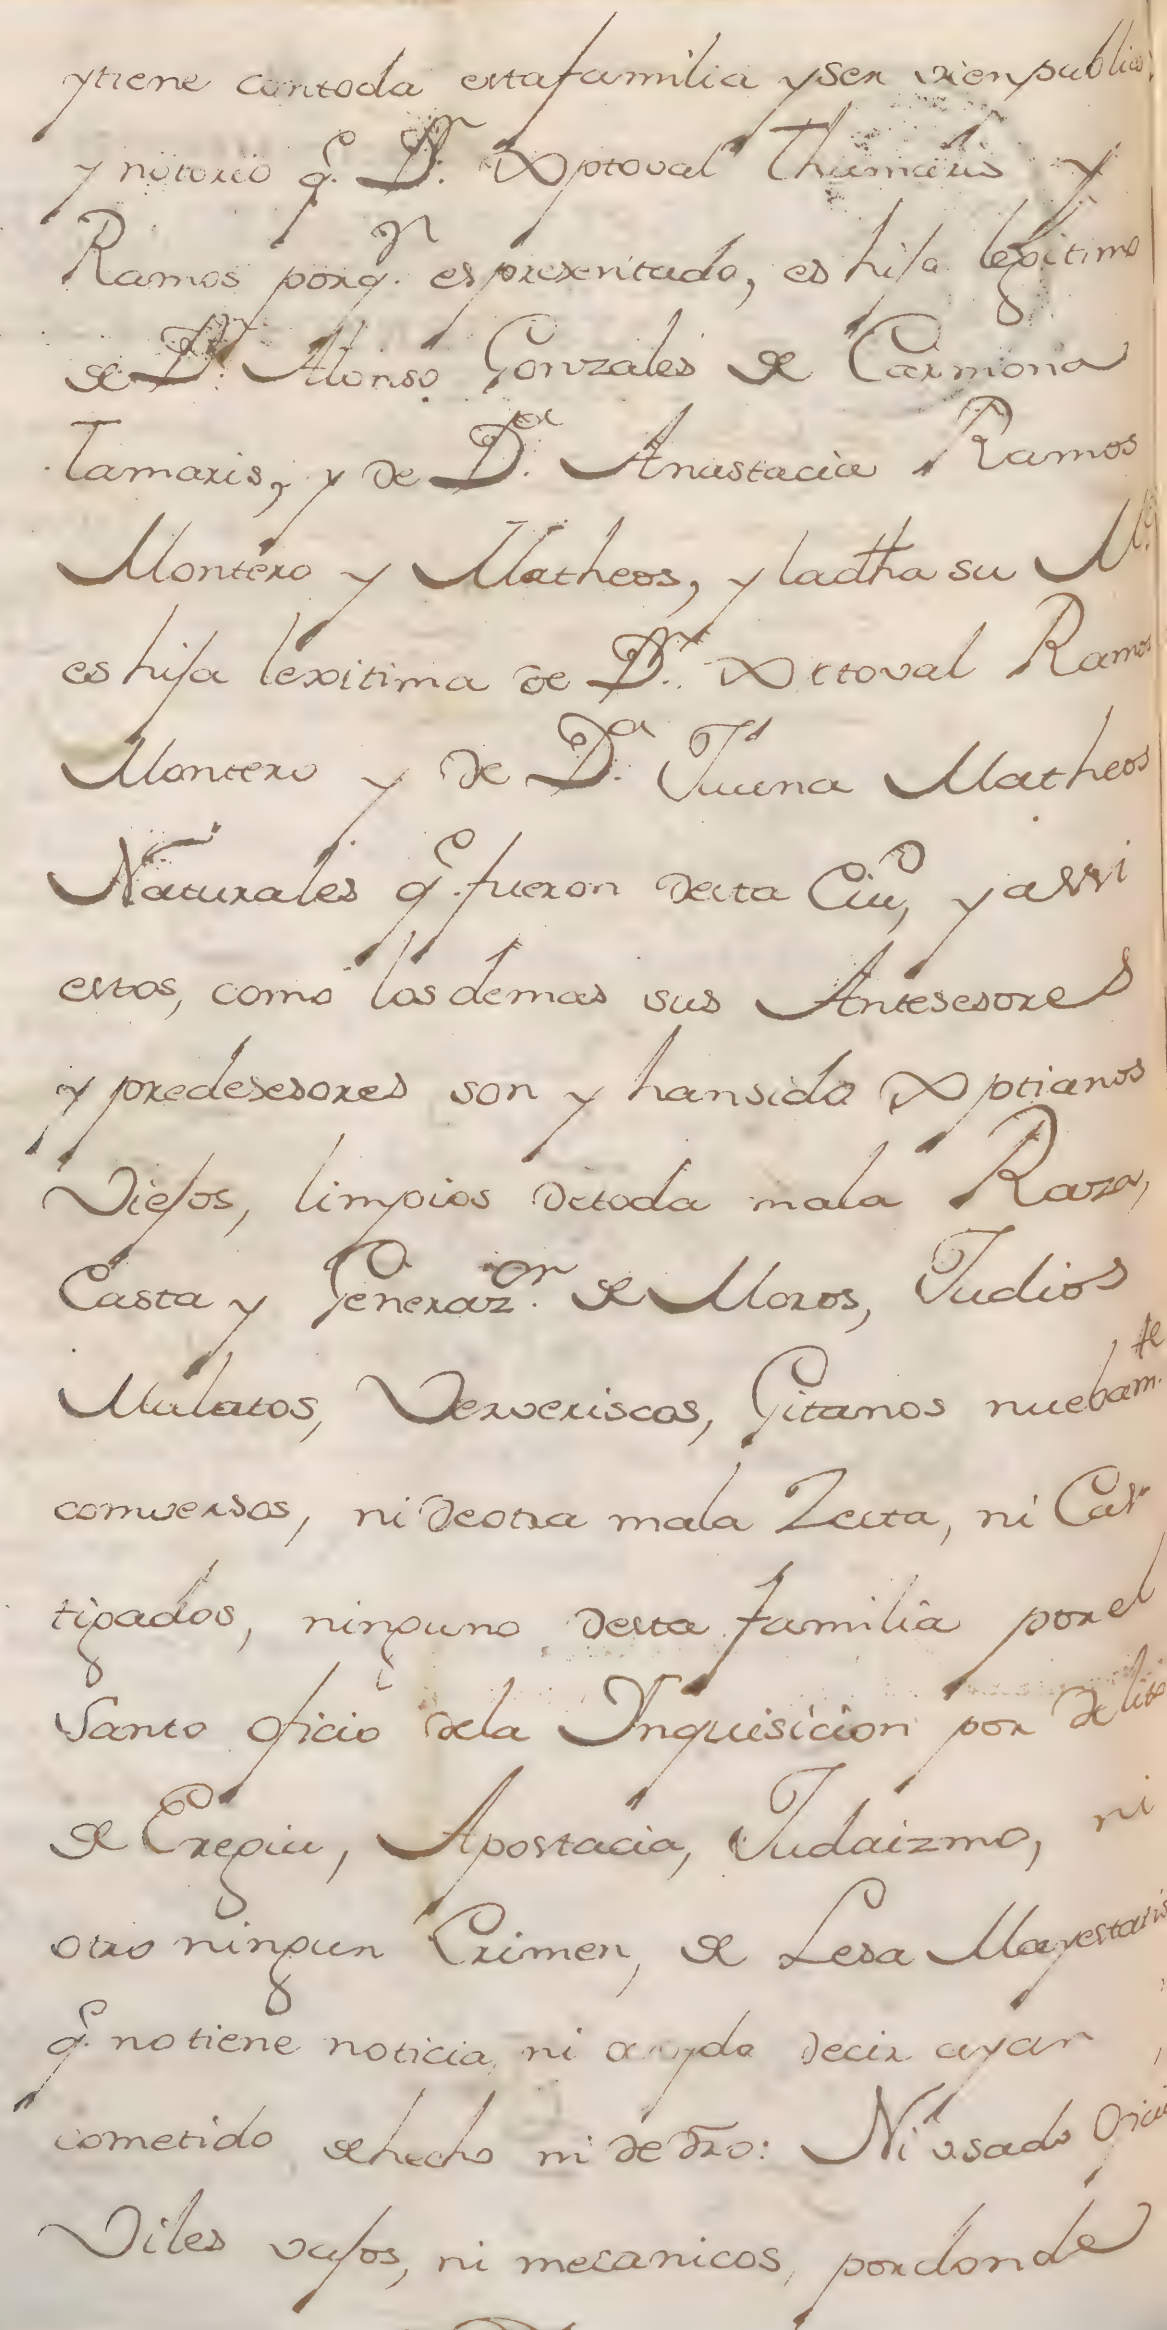 ytiene contoda estafamilia yser vien publico
y notorio q.e D.n Xptoval Thamaris y
Ramos porq.n es presentado, es hijo lexitimo
de D.n Alonso Gonzales de Carmona
Tamaris, y de D.a Anastacia Ramos
Montero y Matheos, y ladha su M.e
es hija lexitima de D.n Xttoval Ramos
Montero y de D.a Juana Matheos
Naturales q.e fueron desta Ciu.d, y assi
estos, como losdemas sus Antesesores
y predesesores son y hansido Xptianos
Viejos, limpios detoda mala Raza,
Casta y Generaz.on de Moros, Judios
Mulatos, Ververiscos, Gitanos nuebam.te
comversos, ni deotra mala Zecta, ni Cas
tigados, ninguno desta familia por el
Santo oficio dela Ynquisicion por delito
de Eregia, Apostacia, Judaizmo, ni
otro ningun Crimen, de Lesa Mayestatis
q.e notiene noticia, ni a oydo decir ayan
cometido dehecho ni de dro: Ni vsado Oficios
Viles vajos, ni mecanicos, pordonde